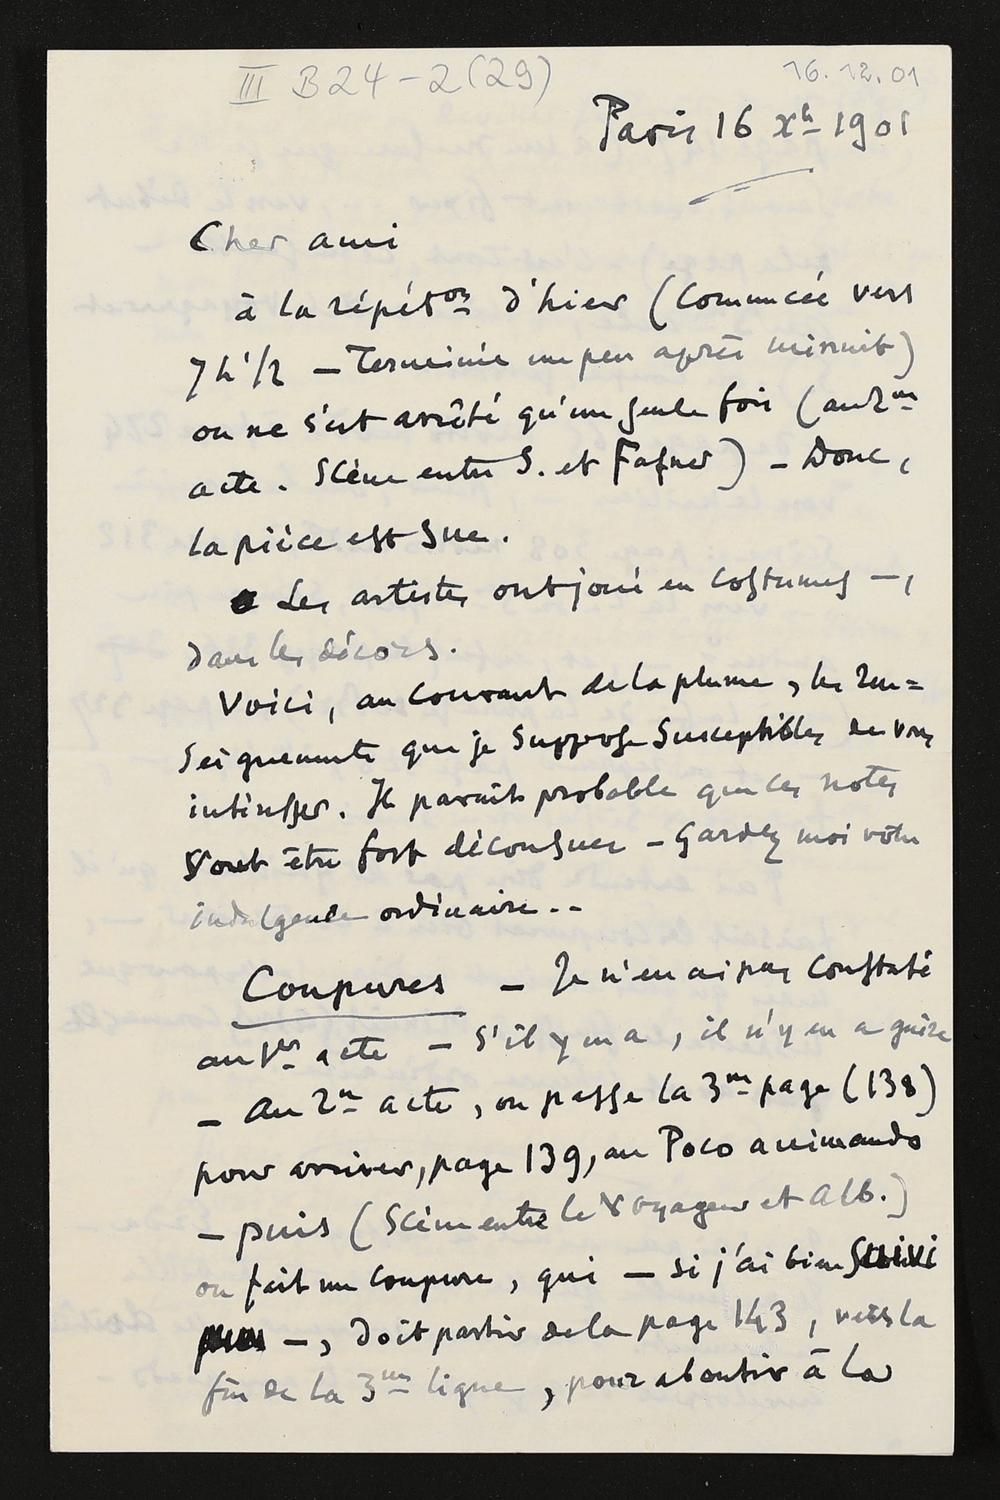 III B24-2(29)
16.12.01
Paris 16 Xbre 1901
Cher ami
à la répéton d'hier (Commencée vers
7h 1/2 — Terminée un peu après minuit)
on ne s'est arrêté qu'une seule fois (au 2me
acte. Scène entre S. et Fafner) — Donc,
la pièce est sue.
Les artistes ont joué en costumes —,
dans les décors.
Voici, au courant de la plume, les ren=
seignements que je suppose susceptibles de vous
intéresser. Il paraît probable que ces notes
vont être fort décousues — Gardez moi votre
indulgence ordinaire..
Coupures — Je n'en ai pas constaté
au 1er acte — S'il y en a, il n'y en a guère
— Au 2me acte, on passe la 3me page (138)
pour arriver, page 139, au Poco animando
— puis (Scène entre le Voyageur et Alb.)
on fait une coupure, qui — si j'ai bien suivi
—, doit partir de la page 143, vers la
fin de la 3me ligne, pour aboutir à la